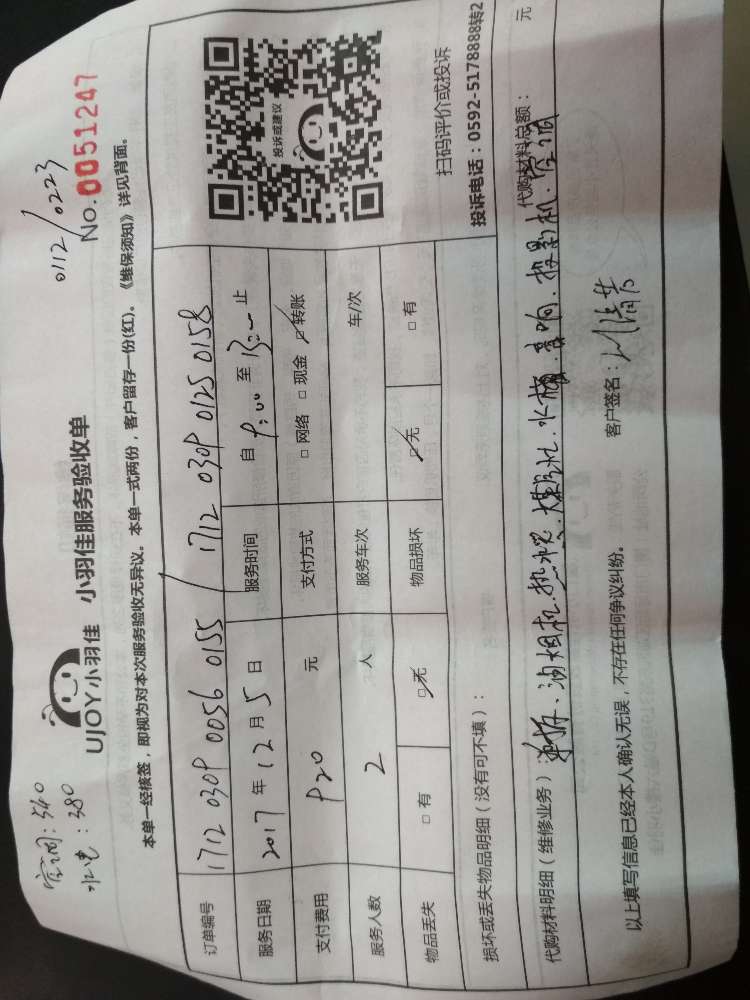 空调:540
水电:380
0112/0223
UJOY小羽佳 小羽佳服务验收单
No.0051247
本单一经核签，即视为对本次服务验收无异议。本单一式两份，客户留存一份(红)。《维保须知》详见背面。
订单编号 1712 0309 0056 0155 / 1712 0309 0125 0158
服务日期 2017 年 12 月 5 日 服务时间 自 9:00 至 13:00 止
支付费用 920 元 支付方式 □网络 □现金 ☑转账
服务人数 2 人 服务车次 车/次
物品丢失 □有 ☑无 物品损坏 ☑无 □有
投诉或建议
扫码评价或投诉
投诉电话：0592-5178888转2
损坏或丢失物品明细（没有可不填）：
代购材料明细（维修业务） 油烟机.热水器.煤气灶.水槽.音响.投影机.空调 代购材料总额： 元
以上填写信息已经本人确认无误，不存在任何争议纠纷。 客户签名：